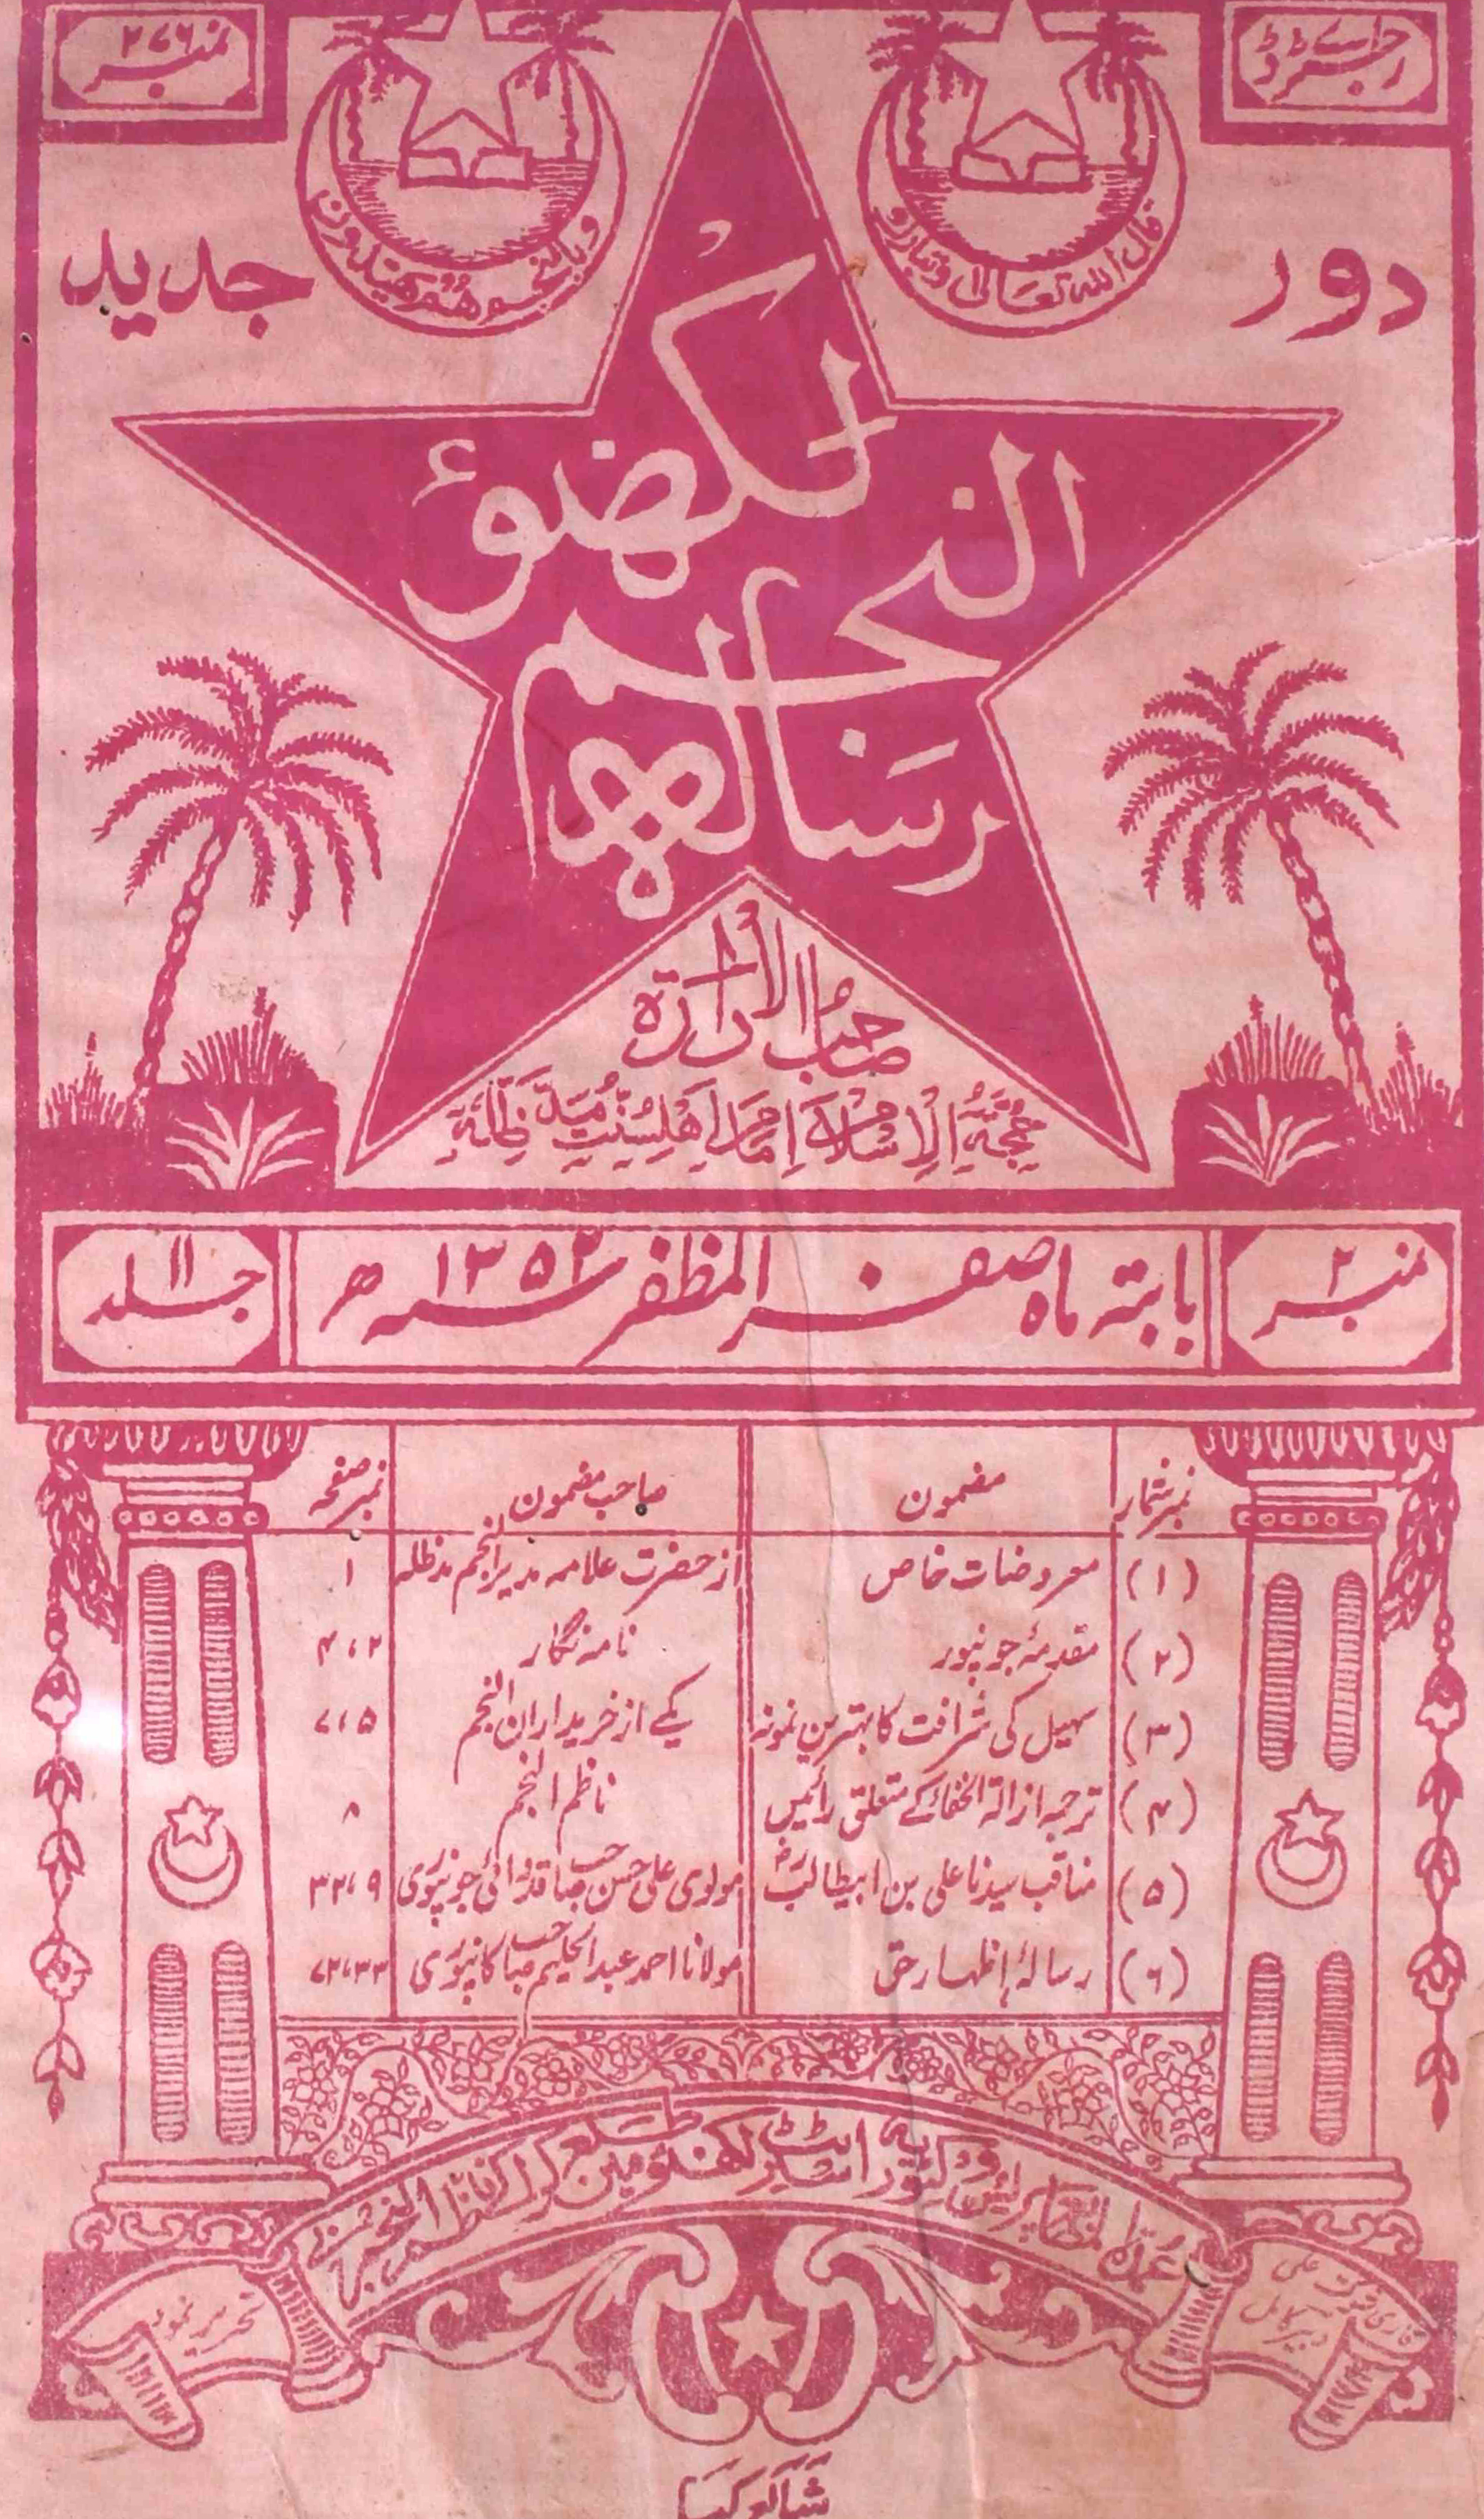 رجسٹرڈ
نمبر ۲۷۶
قال اللہ تعالیٰ وتبارک
وبالنجم هُم يهتدون
دور جدید
رسالہ النجم لکھنؤ
صاحبُ الادارۃ
حجۃ الاسلام امام اھلسنّت مدّ ظلّہ
نمبر ۲
بابتہ ماہ صفر المظفر سنہ ۱۳۵۲ ھ
جلد ۱۱
نمبر شمار مضمون صاحب مضمون نمبر صفحہ
(۱) معروضات خاص از حضرت علامہ مدیر النجم مدظلہ ۱
(۲) مقدمۂ جونپور نامہ نگار ۲، ۴
(۳) سہیل کی شرافت کا بہترین نمونہ یکے از خریداران النجم ۵، ۷
(۴) ترجمہ ازالۃ الخفاء کے متعلق رائیں ناظم النجم ۸
(۵) مناقب سیدنا علی بن ابیطالبؓ مولوی علی حسن صاحب جونپوری ۹، ۳۲
(۶) رسالۂ اظہار حق مولانا احمد عبدالحلیم صاحب کانپوری ۳۳، ۷۲
عمدۃ المطابع پریس وکٹوریہ اسٹریٹ لکھنؤ میں طبع کرا کر ناظم النجم نے
تحریر نمود
شائع کیا